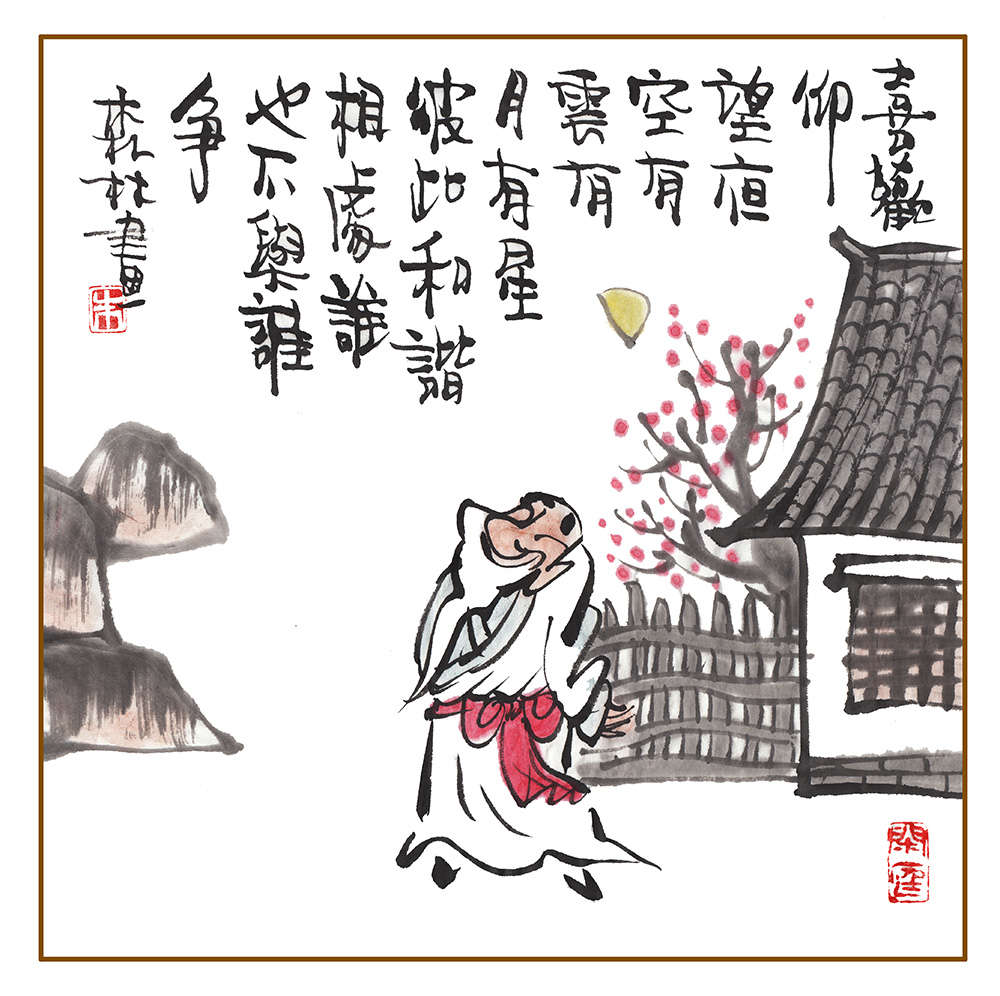 喜歡
仰
望夜
空有
雲有
月有星
彼此和諧
相處誰
也不與誰
爭
森林畫
朱